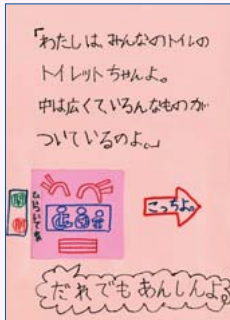 「わたしは、みんなのトイレの
トイレットちゃんよ。
中は広くて、いろんなものが
ついているのよ。」
ひらいてね
こっちよ。
だれでもあんしんよ。